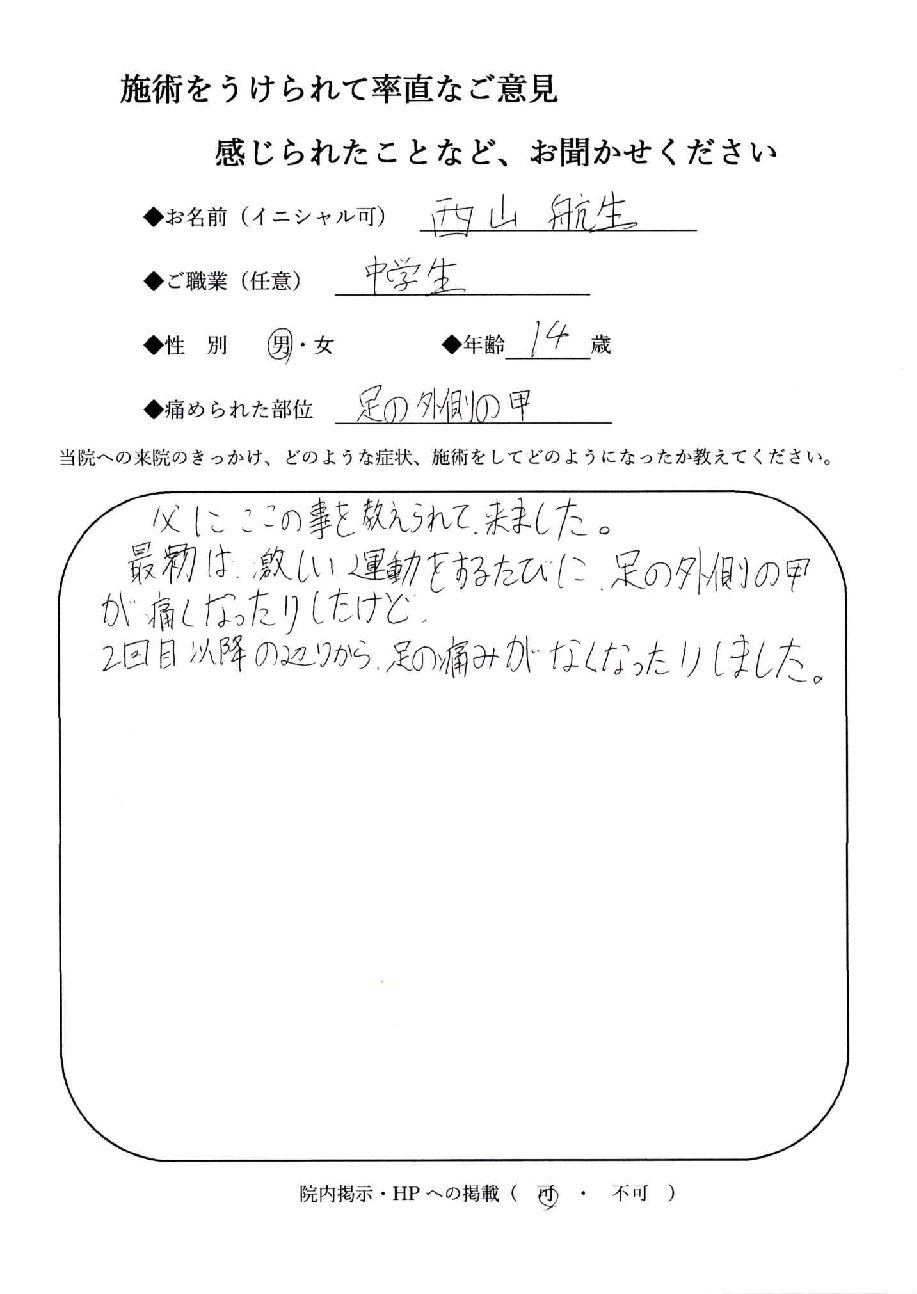 施術をうけられて率直なご意見
感じられたことなど、お聞かせください
◆お名前（イニシャル可） 西山 航生
◆ご職業（任意） 中学生
◆性 別 男・女 ◆年齢 14 歳
◆痛められた部位 足の外側の甲
当院への来院のきっかけ、どのような症状、施術をしてどのようになったか教えてください。
父にここの事を教えられて、来ました。
最初は、激しい運動をするたびに、足の外側の甲
が痛くなったりしたけど、
2回目以降の辺りから、足の痛みがなくなったりしました。
院内掲示・HPへの掲載（ 可 ・ 不可 ）